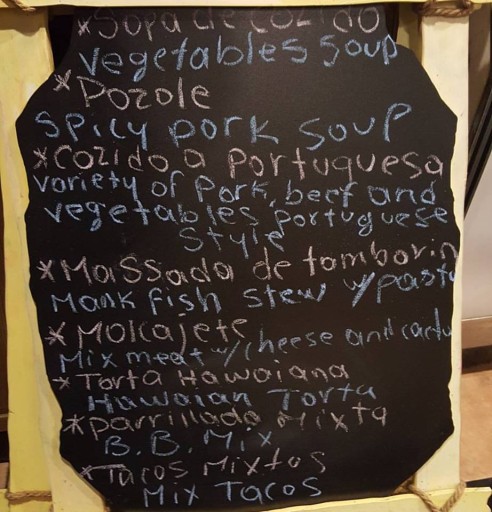 *Sopa de cozido
vegetables soup
*Pozole
spicy pork soup
*cozido a Portuguesa
variety of Pork, beef and
vegetables portuguese
style
*Massada de tamborin
Monk fish stew w/past
*Molcajete
Mix meat w/cheese and cactu
*Torta Hawaiana
Hawaiian Torta
*parrillada Mixta
B.B. Mix
*Tacos Mixtos
Mix Tacos